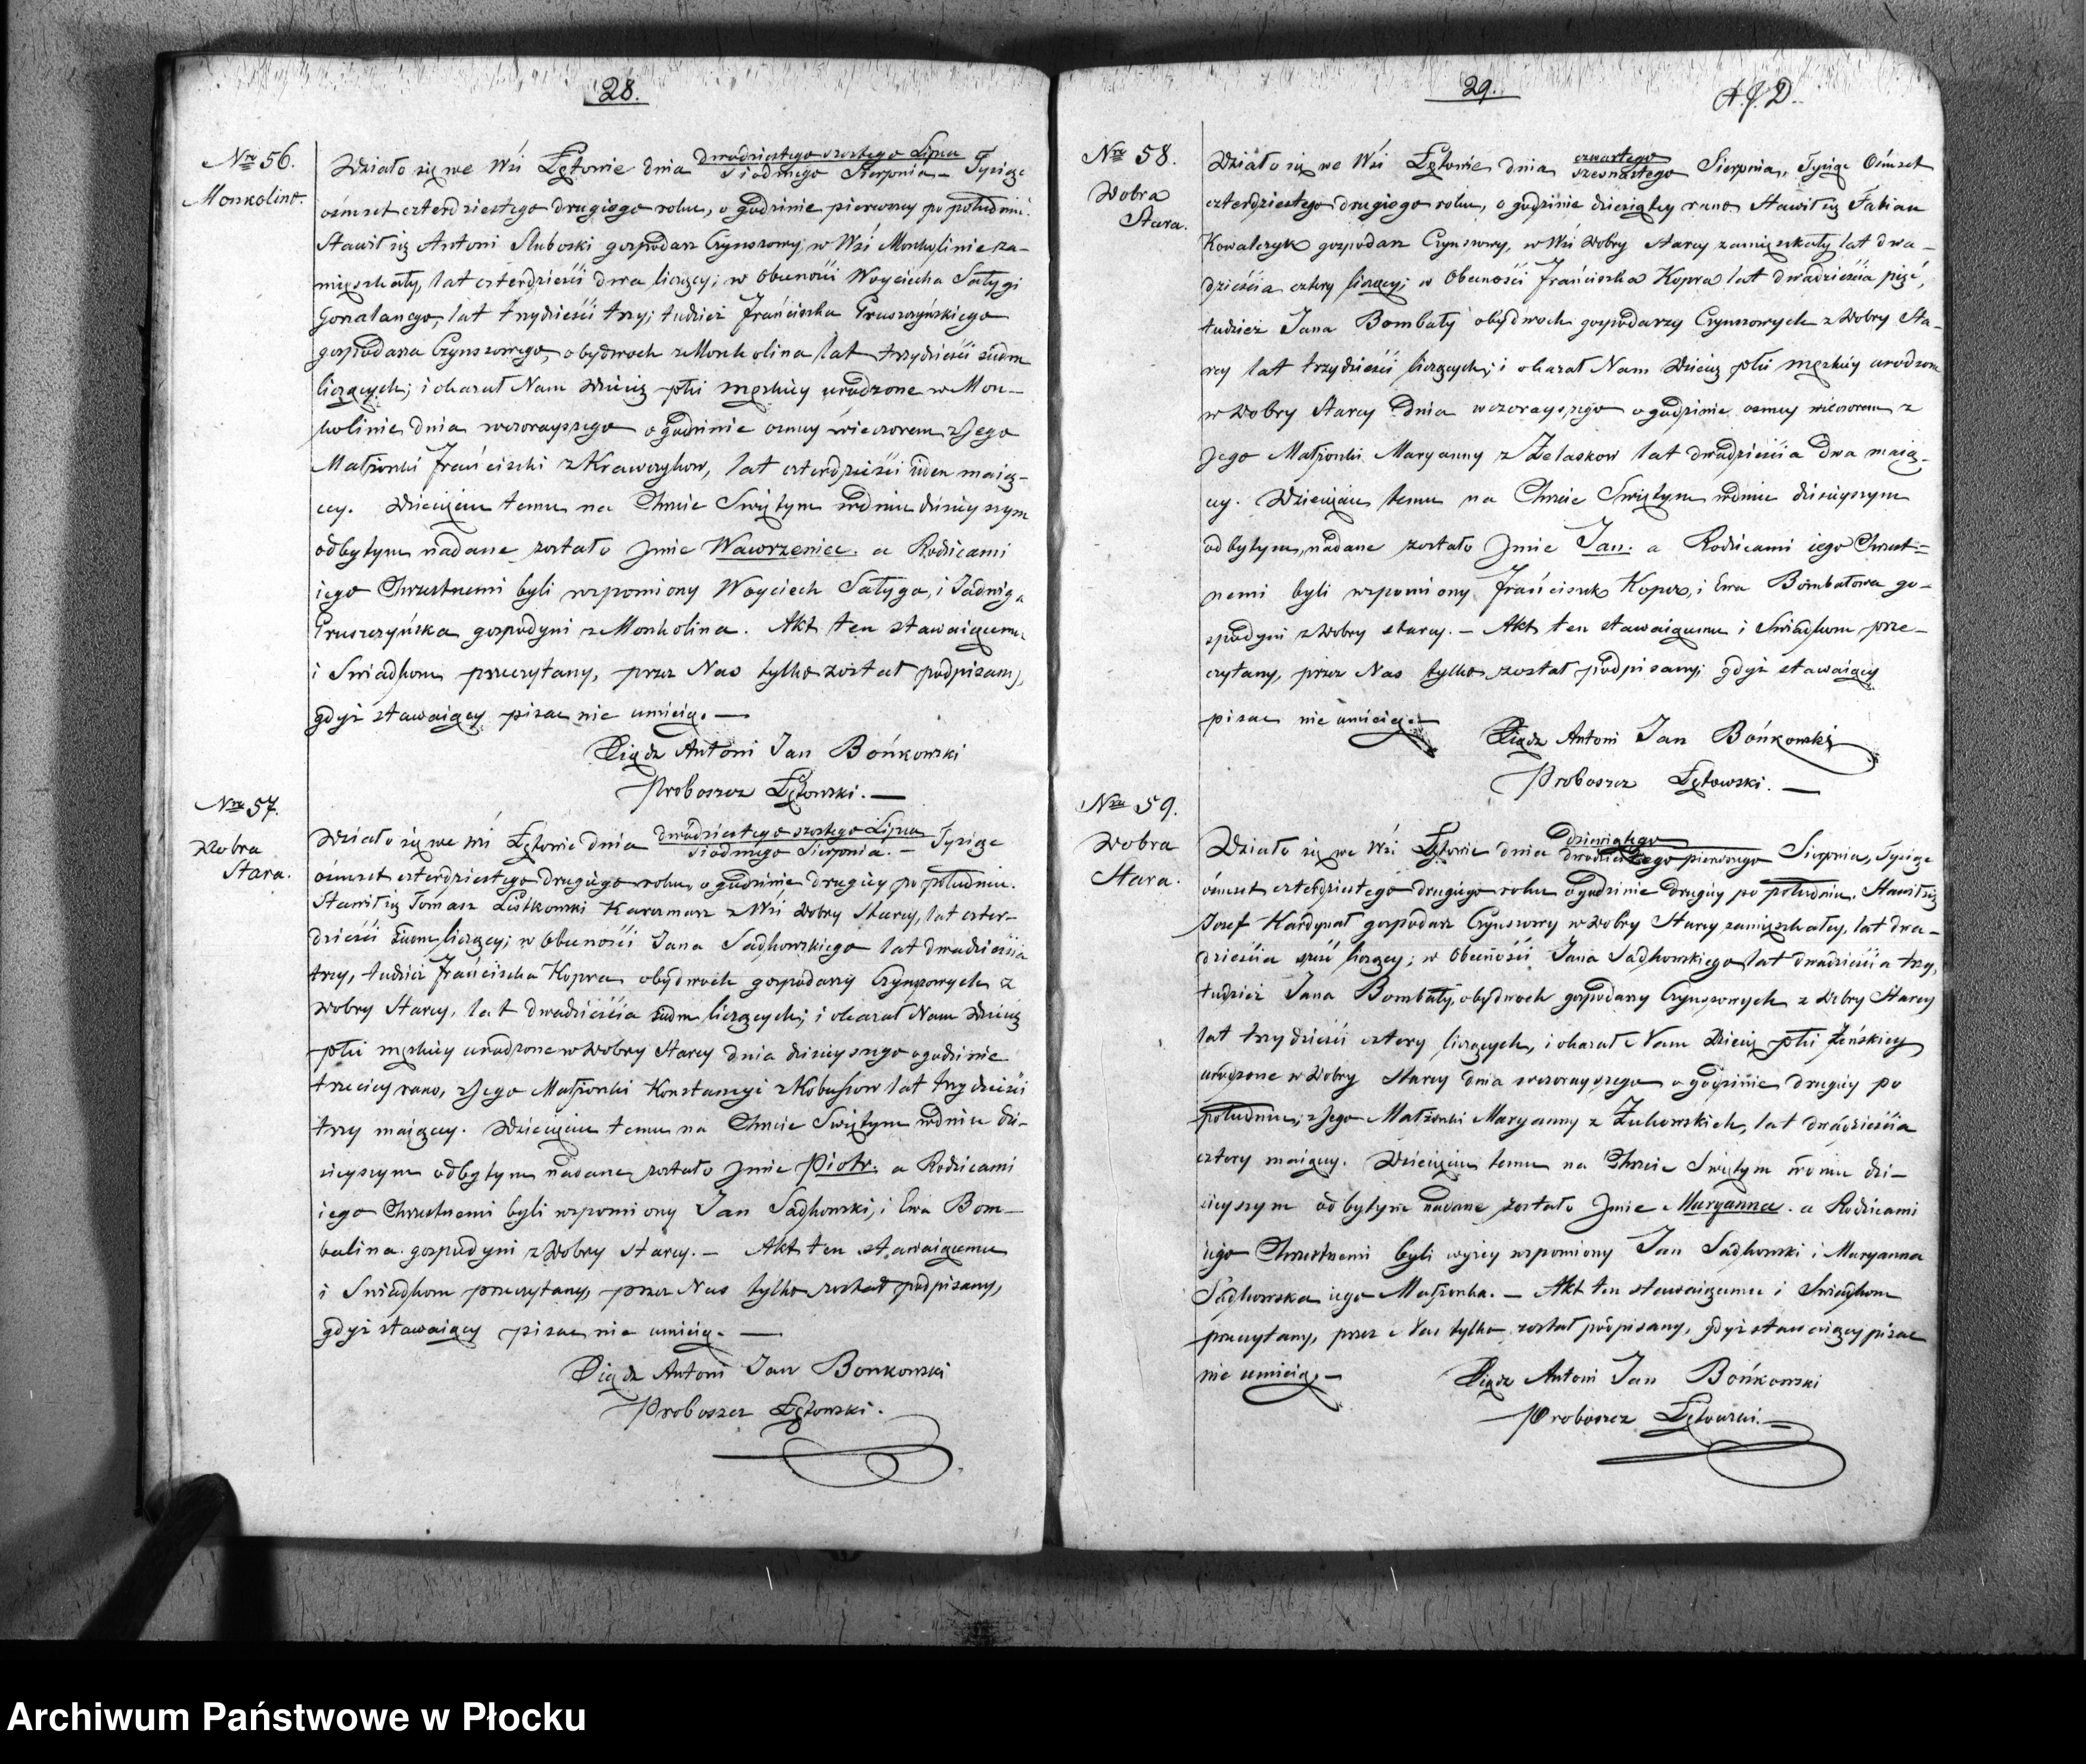 28.
Nro 56.
Monkolino.
Działo się we Wsi Łętowie dnia dwudziestego szostego Lipca
siodmego Sierpnia – Tysiąc
osmset czterdziestego drugiego roku, o godzinie pierwszey po południu.
Stawił się Antoni Słuboski gospodarz Czynszowy, w Wsi Monkolinie za-
mięszkały, lat czterdzieści dwa liczący; w Obecności Woyciecha Satygi
lat trzydzieści trzy; tudzież Franciszka Pruszczyńskiego
gospodarza Czynszowego, obydwoch z Monkolina lat trzydzieści siedm
liczących; i okazał Nam Dziecię płci męzkiey urodzone w Mon-
kolinie dnia wczorayszego o godzinie osmey wieczorem z Jego
Małżonki Franciszki z Krawczykow, lat czterdzieści ieden maią-
cey. Dziecięciu temu na Chrzcie Swiętym w dniu dzisieyszym
odbytym nadane zostało Jmie Wawrzeniec. a Rodzicami
iego Chrzestnemi byli wzpomiony Woyciech Satyga, i Jadwiga
Pruszczyńska gospodyni z Monkolina. Akt ten stawaiącemu
i Swiadkom przeczytany, przez Nas tylko został podpisany,
gdyż stawaiący pisac nie umieią. —
Xiądz Antoni Jan Bońkowski
Proboszcz Łętowski. —
Nro 57.
Dobra
Stara.
Działo się we wsi Łętowie dnia dwudziestego szostego Lipca
siodmego Sierpnia. – Tysiąc
osmset czterdziestego drugiego roku, o godzinie drugiey po południu.
Stawił się Tomasz Listkowski Karczmarz z Wsi Dobry Starey, lat czter-
dzieści siedm liczący; w Obecności Jana Sadkowskiego lat dwadzieścia
trzy, tudzież Franciszka Kopra obydwoch gospodarzy Czynszowych z
Dobry Starey, lat dwadzieścia siedm liczących; i okazał Nam Dziecię
płci męzkiey urodzone w Dobry Starey dnia dzisieyszego o godzinie
trzeciey rano, z Jego Małżonki Konstancyi z Kobusow lat trzydzieści
trzy maiącey. Dziecięciu temu na Chrzcie Swiętym w dniu dzi-
sieyszym odbytym nadane zostało Jmie Piotr. a Rodzicami
iego Chrzestnemi byli wzpomiony Jan Sadkowski, i Ewa Bom-
balina gospodyni z Dobry Starey. – Akt ten stawaiącemu
i Swiadkom przeczytany, przez Nas tylko został podpisany,
gdyż stawaiący pisac nie umieią. —
Xiądz Antoni Jan Bonkowski
Proboszcz Łętowski.
29.
Nro 58.
Dobra
Stara.
Działo się we Wsi Łętowie dnia czwartego
szesnastego Sierpnia, Tysiąc Osmset
czterdziestego drugiego roku, o godzinie dziesiątey rano Stawił się Fabian
Kowalczyk gospodarz Czynszowy, w Wsi Dobry Starey zamięszkały lat dwa-
dzieścia cztery liczący; w Obecności Franciszka Kopra lat dwadzieścia pięć,
tudzież Jana Bombały obydwoch gospodarzy Czynszowych z Dobry Sta-
rey lat trzydzieści liczących; i okazał Nam Dziecię płci męzkiey urodzone
w Dobry Starey dnia wczorayszego o godzinie osmey wieczorem z
Jego Małżonki Maryanny z Zelaskow lat dwadzieścia dwa maią-
cey. Dziecięciu temu na Chrzcie Swiętym w dniu dzisieyszym
odbytym, nadane zostało Jmie Jan. a Rodzicami iego Chrzest-
nemi byli wzpomiony Franciszek Koper, i Ewa Bombałowa go-
spodyni z Dobry Starey. – Akt ten stawaiącemu i Swiadkom prze-
czytany, przez Nas tylko został podpisany; gdyż stawaiący
pisac nie umieią. —
Xiądz Antoni Jan Bońkowski
Proboszcz Łętowski. —
Nro 59.
Dobra
Stara.
Działo się we Wsi Łętowie dnia dziewiątego
dwudziestego pierwszego Sierpnia, Tysiąc
osmset czterdziestego drugiego roku o godzinie drugiey po południu. Stawił się
Jozef Kardynał gospodarz Czynszowy w Dobry Starey zamięszkały, lat dwa-
dzieścia sześć liczący; w Obecności Jana Sadkowskiego lat dwadzieścia trzy,
tudzież Jana Bombały, obydwoch gospodarzy Czynszowych z Dobry Starey
lat trzydzieści cztery liczących, i okazał Nam Dziecię płci Żeńskiey
urodzone w Dobry Starey dnia wczorayszego o godzinie drugiey po
południu, z Jego Małżonki Maryanny z Żukowskich, lat dwadzieścia
cztery maiącey. Dziecięciu temu na Chrzcie Swiętym w dniu dzi-
sieyszym odbytym nadane zostało Jmie Maryanna. a Rodzicami
iego Chrzestnemi byli wyżey wzpomiony Jan Sadkowski i Maryanna
Sadkowska iego Małżonka. – Akt ten stawaiącemu i Swiadkom
przeczytany, przez Nas tylko został podpisany, gdyż stawaiący pisac
nie umieią. –
Xiądz Antoni Jan Bońkowski
Proboszcz Łętowski. —
Archiwum Państwowe w Płocku